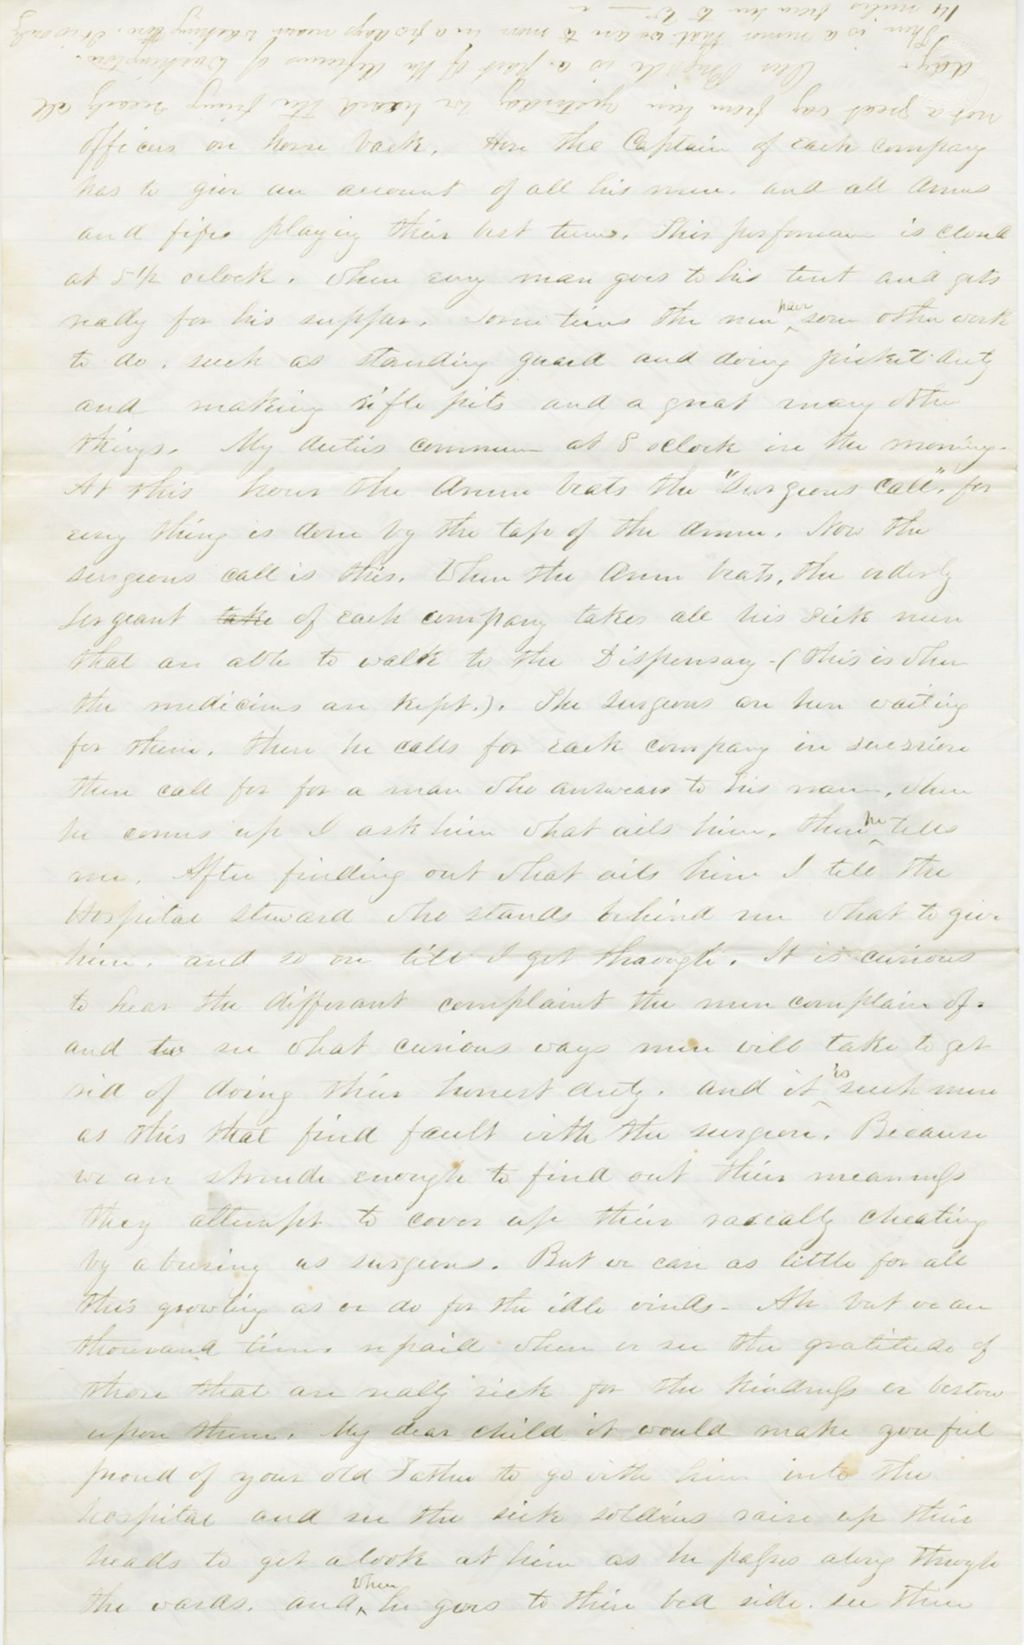 not a great way from him yesterday we heard the firing nearly all
day. Our Brigade is a part of the defences of Washington.
There is a rumor that we are to move in a few days nearer Washington. It is only
14 miles from here to W
officers on horse back. Here the Captain of each company
has to give an account of all his men. and all drums
and fifes playing their best tunes. This performance is closed
at 5 1/2 oclock. When every man goes to his tent and gets
ready for his supper. Some times the men have some other work
to do. such as standing guard and doing picket duty
and making rifle pits and a great many other
things. My duties commence at 8 oclock in the morning.
At this hour the drum beats the "Surgeons Call". for
every thing is done by the tap of the drum. Now the
surgeons call is this. When the drum beats, the orderly
Sergeant take of each company takes all his sick men
that are able to walk to the Dispensary - (this is where
the medicines are kept.). The Surgeons are here waiting
for them. then he calls for each company in succession
then call for for a man who answears to his name, when
he comes up I ask him what ails him. then he tells
me. After finding out what ails him I tell the
Hospital Steward who stands behind me what to give
him. and so on till I get through. It is curious
to hear the differant complaint the men complain of.
and to see what curious ways men will take to get
rid of doing their honest duty. and it is such men
as this that find fault with the surgeon. Because
we are shrude enough to find out their meanness
they attempt to cover up their rascally cheating
by abusing us surgeons. But we care as little for all
this growling as we do for the idle winds - Ah but we are
thousand times repaid when we see the gratitude of
those that are really sick for the kindness we bestow
upon them. My dear child it would make you feel
proud of your old Father to go with him into the
hospital and see the sick soldiers raise up their
heads to get a look at him as he passes along through
the wards. and when he goes to their bed side. see them